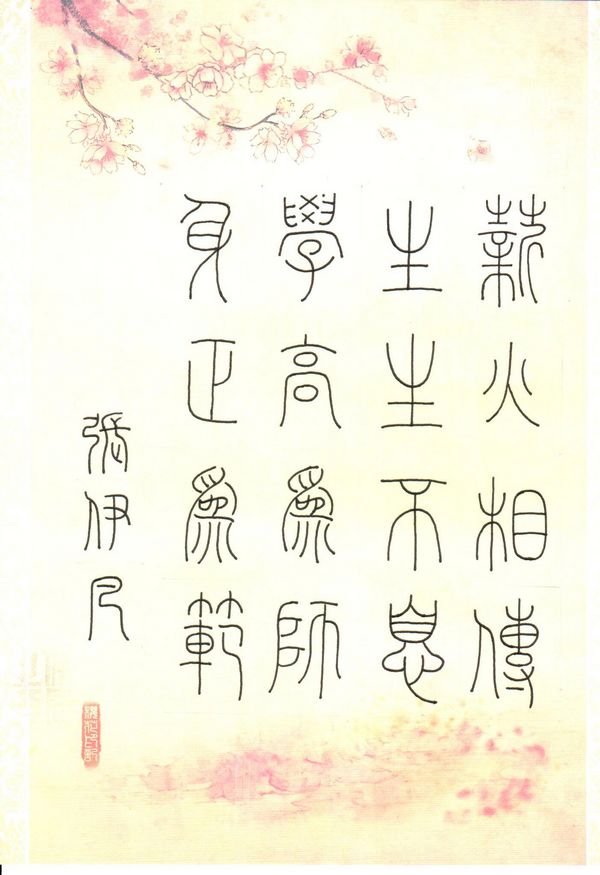 薪火相傳
生生不息
學高爲師
身正爲範
張伊凡